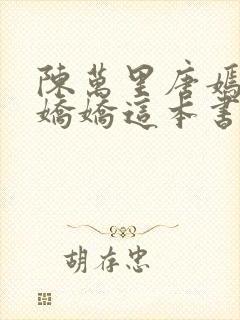 陳萬里唐嫣
嬌嬌這本書
胡存忠